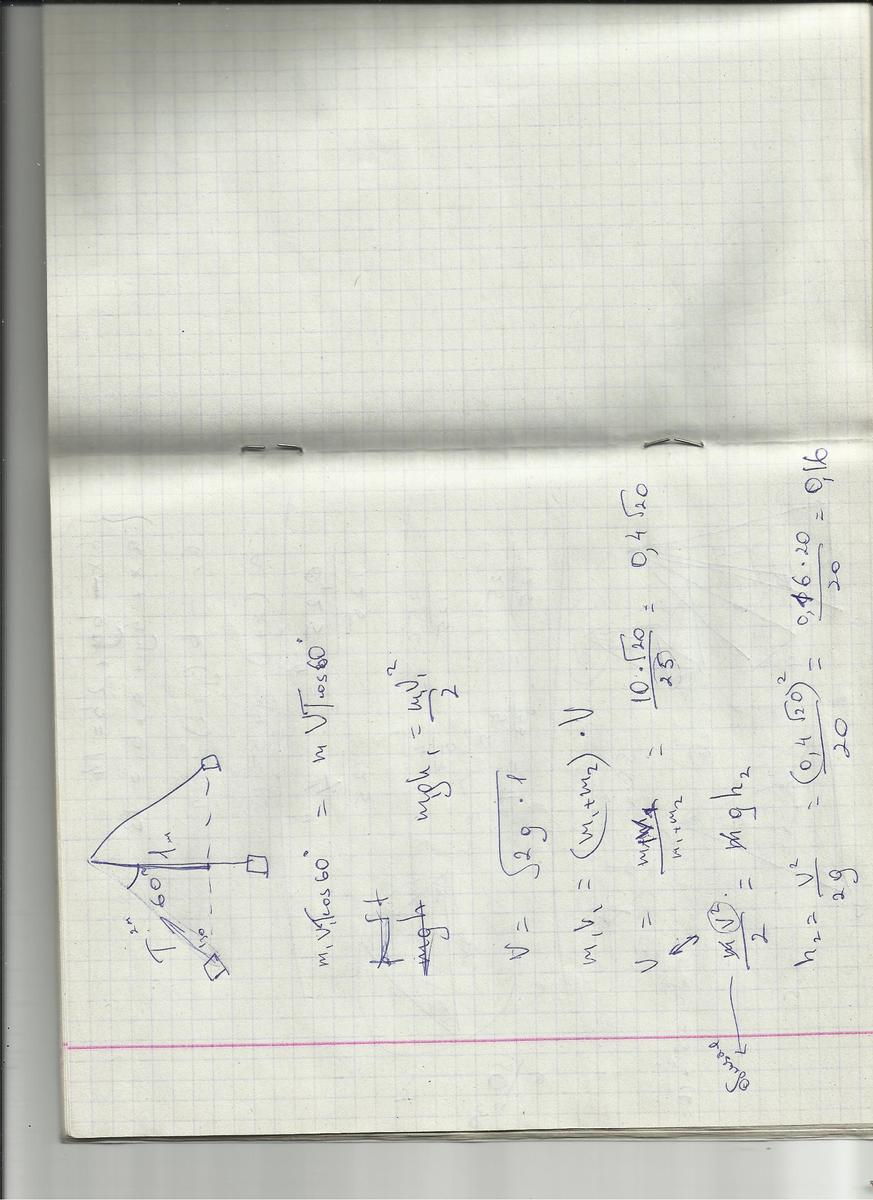 2м
T
60°
1м
m₁V₁Tcos60° = m VTcos60°
mgh
mgh₁ = m₁v₁²/2
v = √2g·1
m₁v₁ = (m₁+m₂)·V
V = m₁v₁/m₁+m₂ = 10·√20/25 = 0,4√20
mv²/2 = mgh₂
h₂ = v²/2g = (0,4√20)²/20 = 0,16·20/20 = 0,16